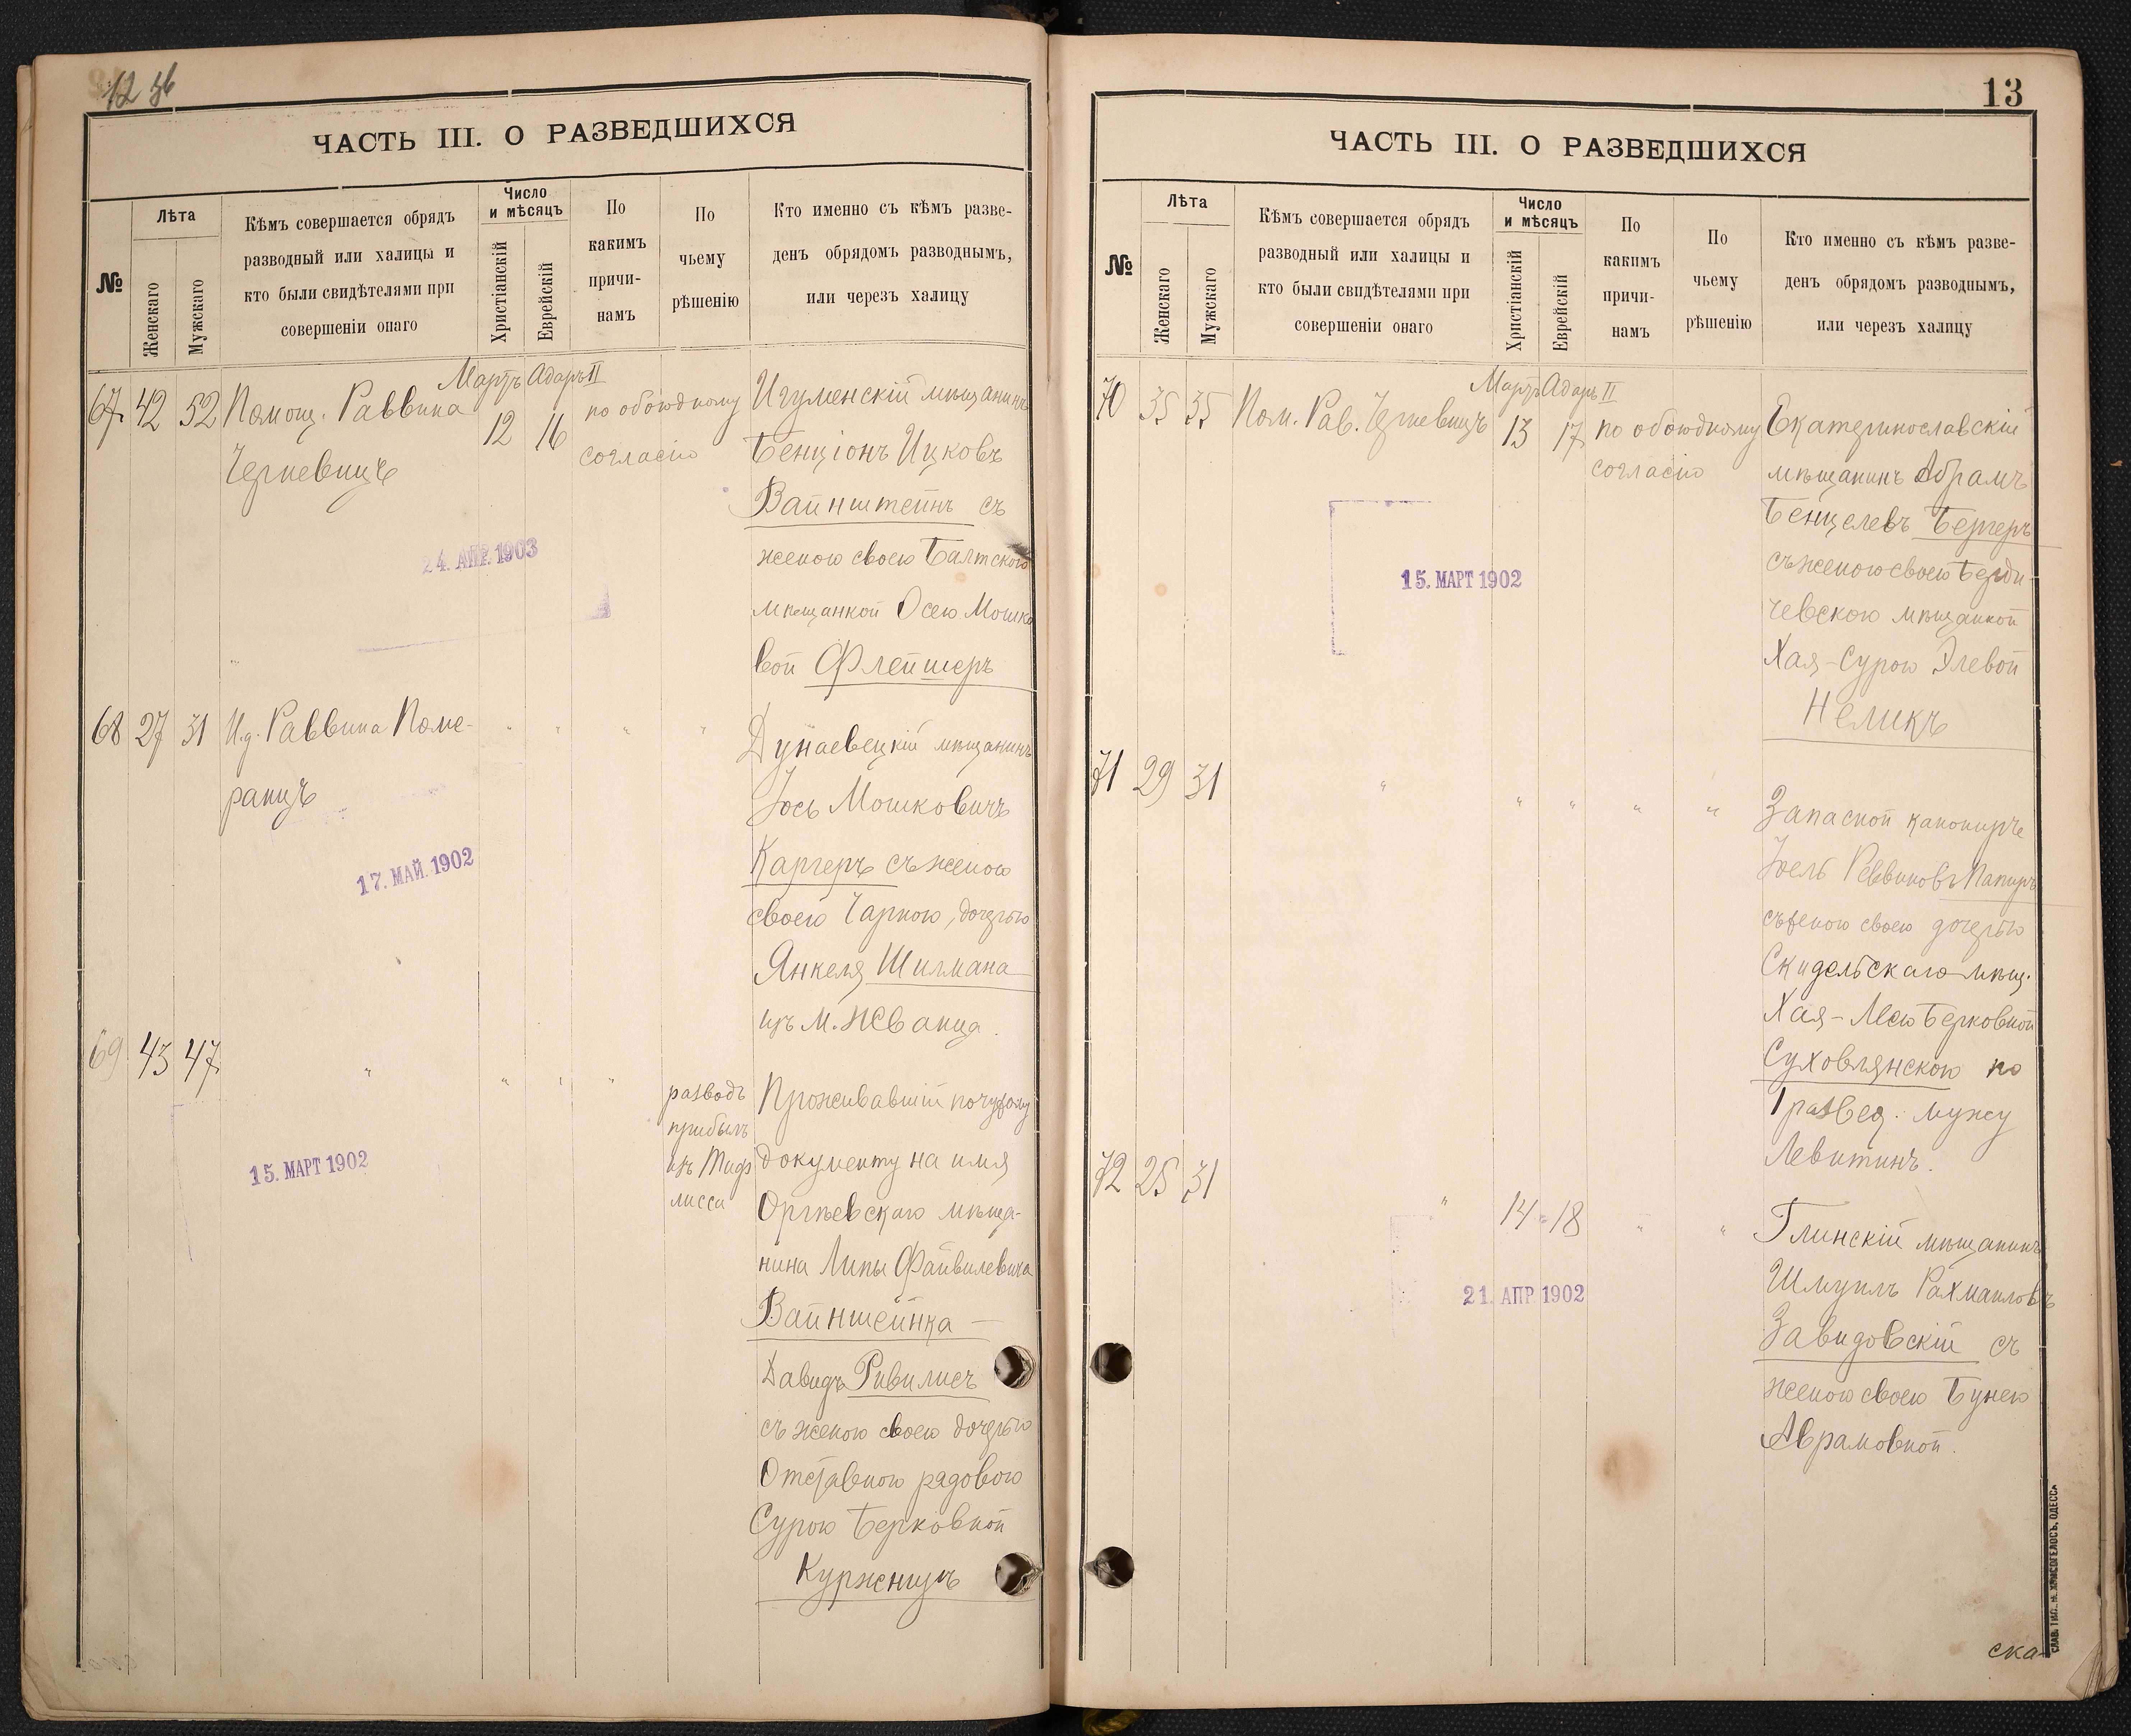 12 об
ЧАСТЬ III. О РАЗВЕДШИХСЯ
№
Лѣта
Женскаго
Мужскаго
Кѣмъ совершается обрядъ
разводный или халицы и
кто были свидѣтелями при
совершеніи онаго
Число
и мѣсяцъ
Христіанскій
Еврейскій
По
какимъ
причи-
намъ
По
чьему
рѣшенію
Кто именно съ кѣмъ разве-
денъ обрядомъ разводнымъ,
или черезъ халицу
Мартъ Адаръ II
67 42 52 Помощ. Раввина
Черневицъ
12 16
по обоюдному
согласію
Игуменскій мѣщанинъ
Бенціонъ Ицковъ
Вайнштейнъ съ
женою своею Балтскою
мѣщанкой Осею Мошко
вой Флейшеръ
24. АПР. 1903
68 27 31 И.д. Раввина Поме-
ранцъ
" " " "
Дунаевецкій мѣщанинъ
Іось Мошковичъ
Каргеръ съ женою
своею Чарною, дочерью
Янкеля Шилмана
изъ м. Жванца.
17. МАЙ. 1902
69 43 47 " " " "
разводъ
прибылъ
изъ Тиф
лисса
Проживавшій по чужому
документу на имя
Оргѣевскаго мѣща-
нина Липы Файвилевича
Вайншейнка —
Давидъ Ривилисъ
съ женою своею дочерью
Отставного рядового
Сурою Берковной
Курженцъ
15. МАРТ 1902
13
ЧАСТЬ III. О РАЗВЕДШИХСЯ
№
Лѣта
Женскаго
Мужскаго
Кѣмъ совершается обрядъ
разводный или халицы и
кто были свидѣтелями при
совершеніи онаго
Число
и мѣсяцъ
Христіанскій
Еврейскій
По
какимъ
причи-
намъ
По
чьему
рѣшенію
Кто именно съ кѣмъ разве-
денъ обрядомъ разводнымъ,
или черезъ халицу
Мартъ Адаръ II
70 35 35 Пом. Рав. Черневицъ
13 17
по обоюдному
согласію
Екатеринославскій
мѣщанинъ Абрамъ
Бенцелевъ Бергеръ
съ женою своею Берди
чевскою мѣщанкой
Хая-Сурою Элевой
Немикъ
15. МАРТ 1902
71 29 31 " " " " "
Запасной канониръ
Іоель Реввиновъ Папиръ
съ женою своею дочерью
Скидельскаго мѣщ.
Хая-Леею Берковной
Суховлянскою по
1 развед. мужу
Левитинъ.
72 25 31 " 14 18 " "
Глинскій мѣщанинъ
Шмуилъ Рахмаиловъ
Завидовскій съ
женою своею Бунею
Аврамовной.
21. АПР 1902
СЛАВ. ТИП. Н. ХРИСОГЕЛОСЪ, ОДЕССА
ска-